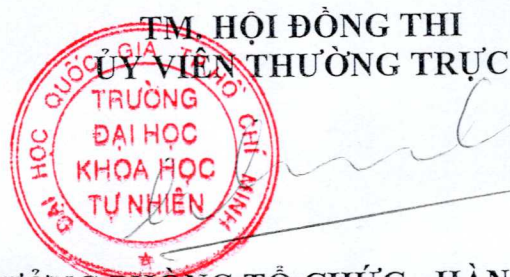 TM. HỘI ĐỒNG THI
ỦY VIÊN THƯỜNG TRỰC
ĐẠI HỌC QUỐC GIA TP HỒ CHÍ MINH
TRƯỜNG
ĐẠI HỌC
KHOA HỌC
TỰ NHIÊN
PHÒNG TỔ CHỨC - HÀN